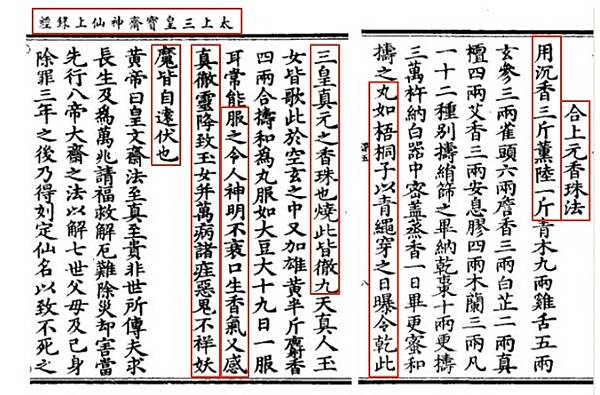 太上三皇寶齋神仙上錄經
合上元香珠法
用沉香三斤薰陸一斤青木九兩雞舌五兩
玄參三兩雀頭六兩詹香三兩白芷二兩真
檀四兩艾香三兩安息膠四兩木蘭三兩凡
一十二種別擣絹篩之畢納乾棗十兩更擣
三萬杵納白器中密蓋蒸香一日畢更蜜和
擣之丸如梧桐子以青繩穿之日曝令乾此
第五
八
三皇真元之香珠也燒此皆徹九天真人玉
女皆歌此於空玄之中又加雄黃半斤麝香
四兩合擣和為丸服如大豆大十九日一服
耳常能服之令人神明不衰口生香氣又感
真徹靈降致玉女并萬病諸疰惡鬼不祥妖
魔皆自遠伏也
黃帝曰皇文齋法至真至貴非世所傳夫求
長生及為萬兆請福救解厄難除災却害當
先行八帝大齋之法以解七世父母及己身
除罪三年之後乃得刻定仙名以致不死之